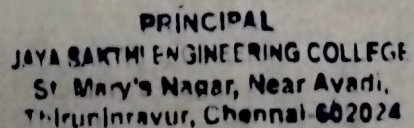 PRINCIPAL
JAYA SAKTHI ENGINEERING COLLEGE
St Mary's Nagar, Near Avadi,
Thiruninravur, Chennai-602024